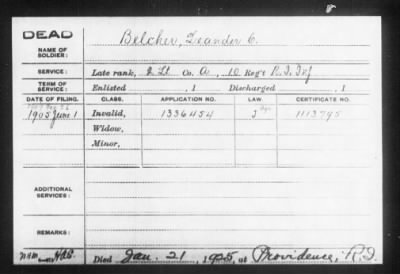 DEAD
NAME OF SOLDIER: Belcher, Leander C.
SERVICE: Late rank, 2 Lt Co. A, 10 Reg't R.I. Inf
TERM OF SERVICE: Enlisted , 1 Discharged , 1
DATE OF FILING. CLASS. APPLICATION NO. LAW. CERTIFICATE NO.
1905 June 1 Invalid, 1336454 J 1113795
Widow,
Minor,
ADDITIONAL SERVICES:
REMARKS:
Died Jan. 21, 1925, at Providence, R.I.